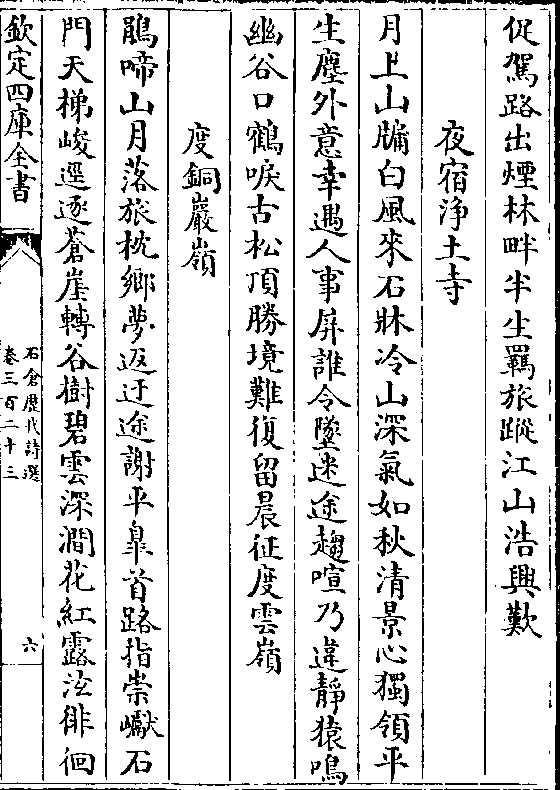 促駕路出煙林畔半生羈旅蹤江山浩興歎
夜宿浄土寺
月上山牖白風來石牀冷山深氣如秋清景心獨領平
生塵外意幸遇人事屏誰令墜迷途趨喧乃違靜猿鳴
幽谷口鶴唳古松頂勝境難復留晨征度雲嶺
度銅巖嶺
鵑啼山月落旅枕鄉夢返迂途謝平臯首路指崇巘石
門天梯峻逕逐蒼崖轉谷樹碧雲深澗花紅露泫徘徊
欽定四庫全書
石倉歷代詩選
卷三百二十三
六